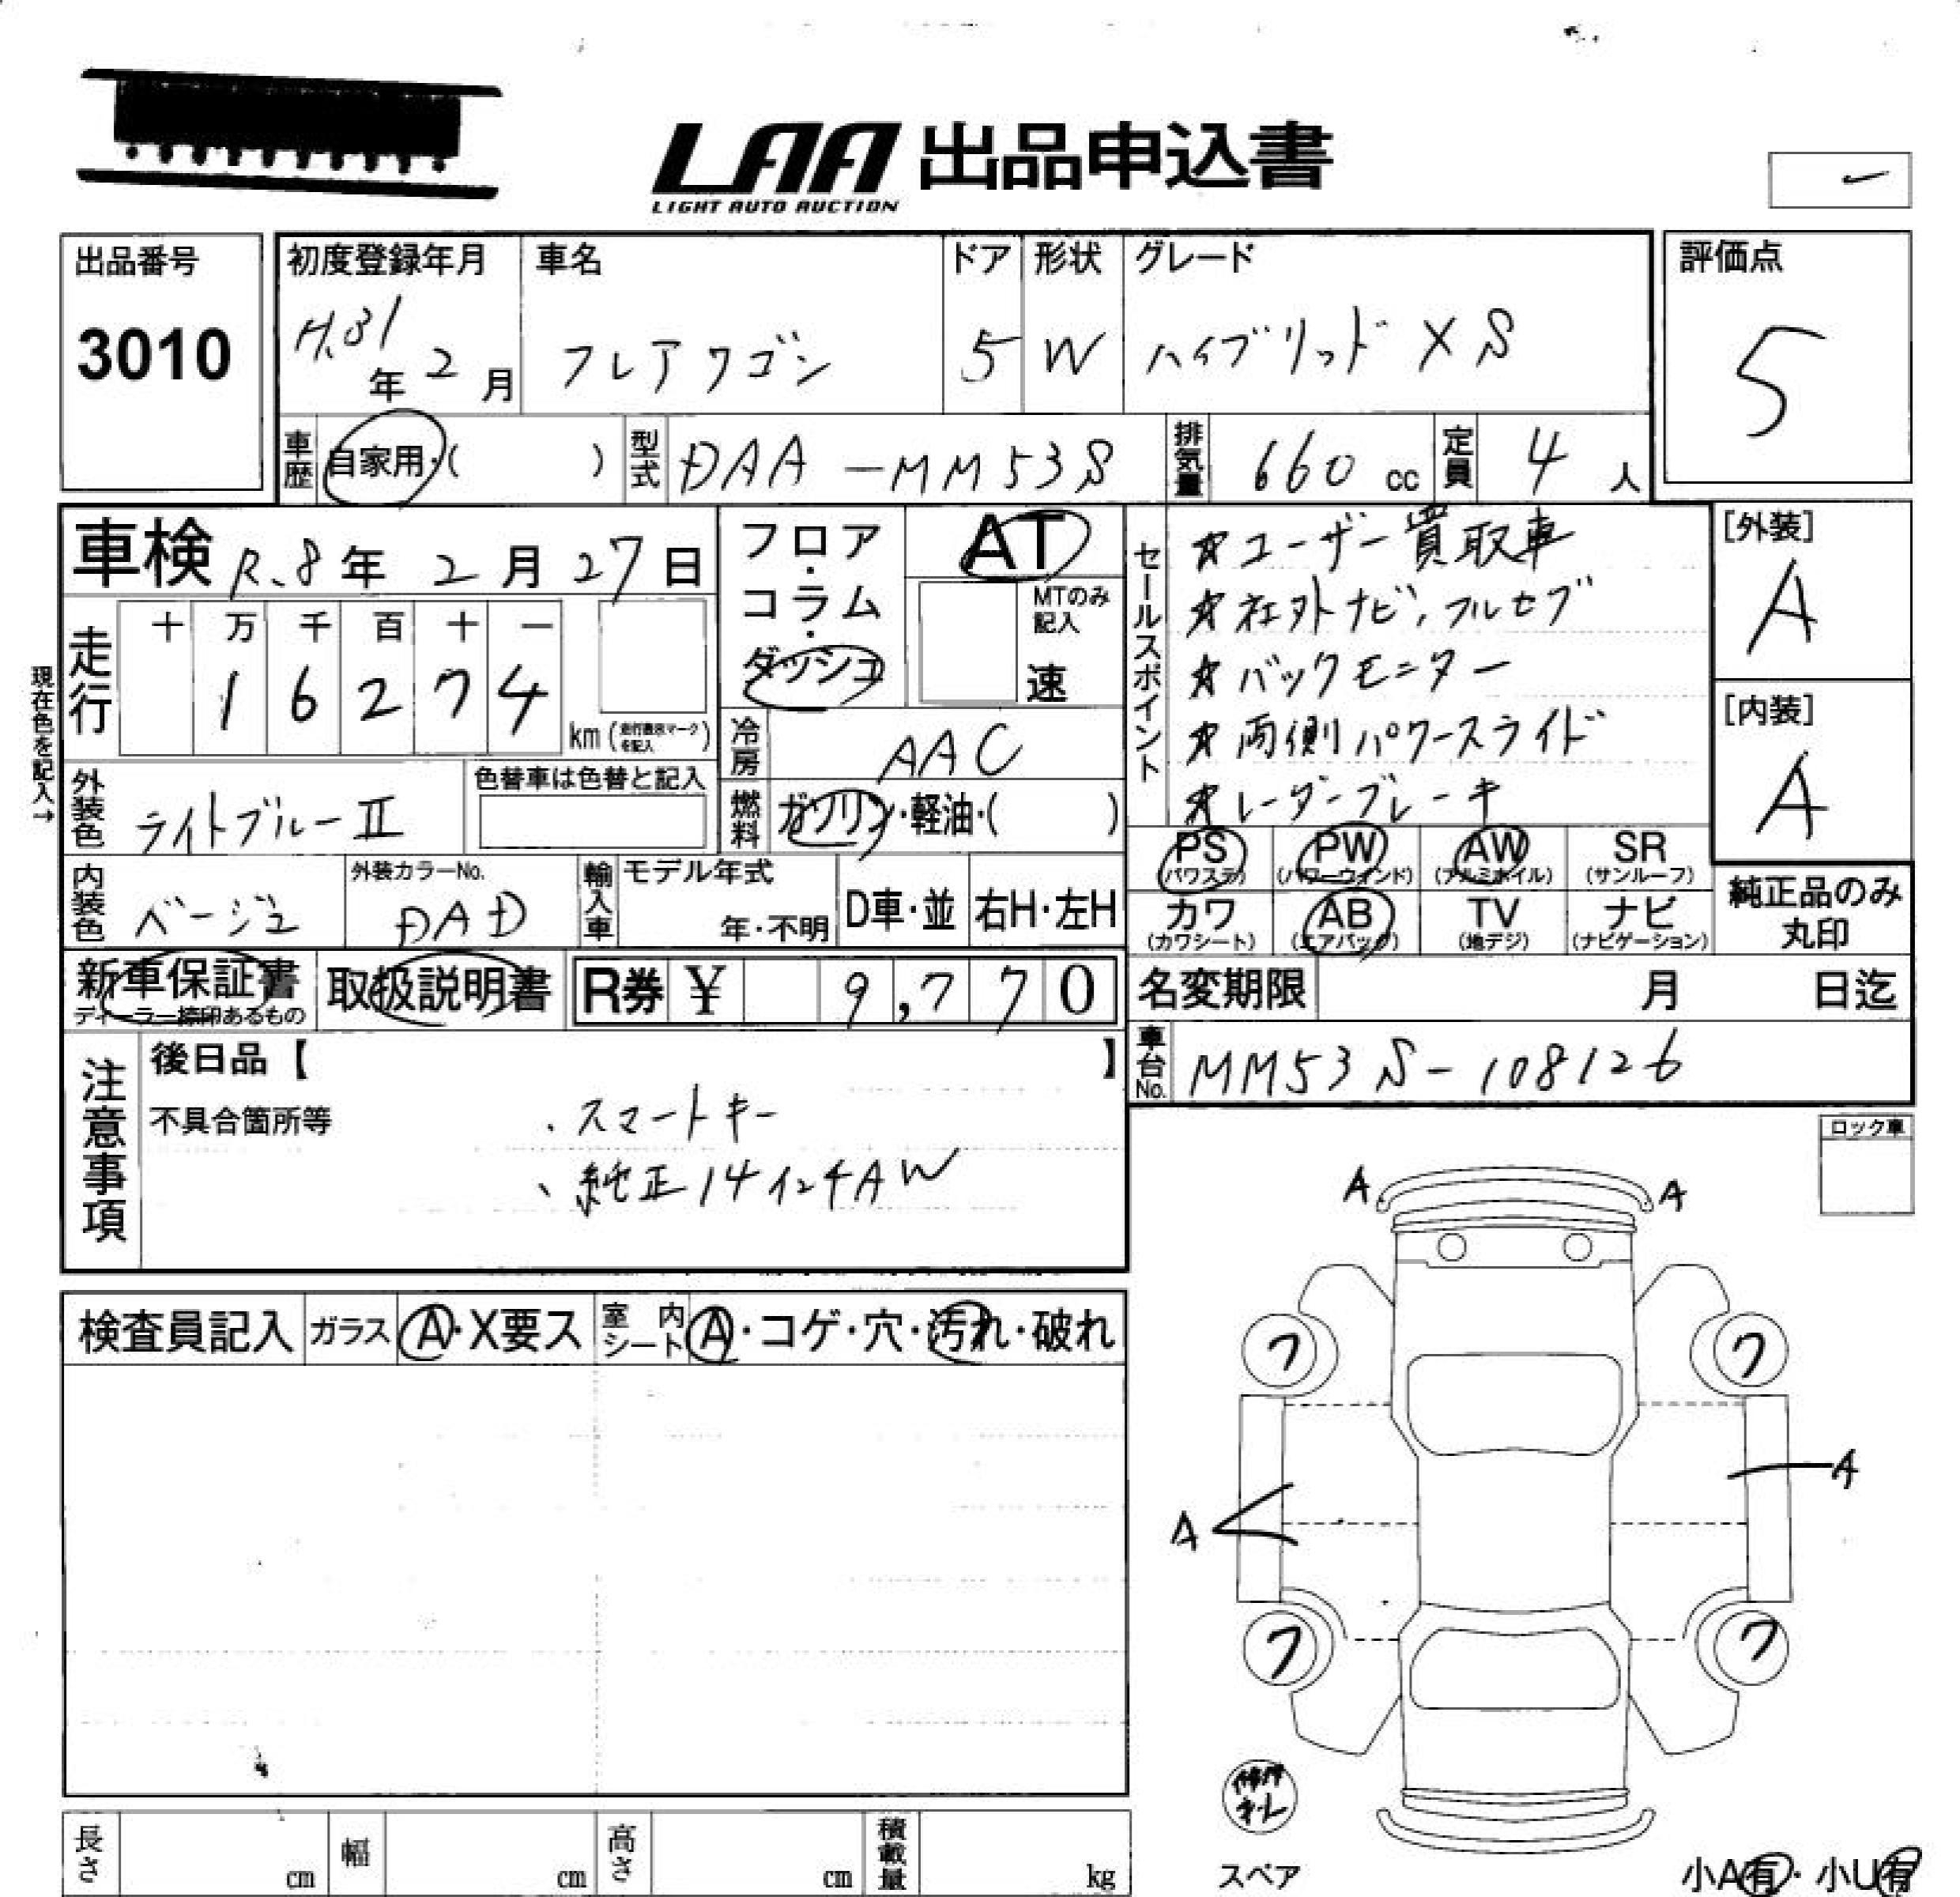 LAA 出品申込書
LIGHT AUTO AUCTION
出品番号
3010
初度登録年月
H.31年 2月
車名
フレアワゴン
ドア
5
形状
W
グレード
ハイブリッド XS
評価点
5
車歴 自家用・( )
型式 DAA-MM53S
排気量 660 cc
定員 4 人
車検 R.8年 2月 27日
フロア・コラム・ダッシュ
AT
MTのみ記入
速
現在色を記入→
走行
十 万 千 百 十 一
1 6 2 7 4
km (走行表示マークを記入)
冷房 AAC
燃料 ガソリン・軽油・( )
外装色 ライトブルーII
色替車は色替と記入
内装色 ベージュ
外装カラーNo.
DAD
輸入車
モデル年式
年・不明
D車・並
右H・左H
セールスポイント
★ユーザー買取車
★社外ナビ、フルセブ
★バックモニター
★両側パワースライド
★レーダーブレーキ
[外装]
A
[内装]
A
PS (パワステ)
PW (パワーウィンド)
AW (アルミホイル)
SR (サンルーフ)
カワ (カワシート)
AB (エアバッグ)
TV (地デジ)
ナビ (ナビゲーション)
純正品のみ丸印
新車保証書
ディーラー捺印あるもの
取扱説明書
R券 ¥ 9,770
名変期限 月 日迄
車台No. MM53S-108126
注意事項
後日品【 】
不具合箇所等
、スマートキー
、純正14インチAW
ロック車
検査員記入
ガラス A・X要ス
室内シート A・コゲ・穴・汚れ・破れ
A A
ワ ワ
A
A
ワ ワ
修理キット
スペア
小A有・小U有
長さ cm
幅 cm
高さ cm
積載量 kg